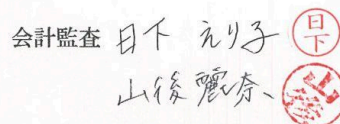 会計監査 日下 えり子 日下
山後 麗奈 山後